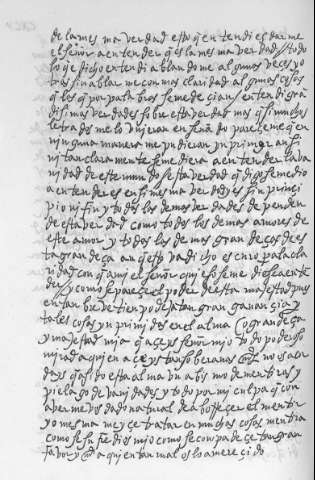 de la mesma verdad esto q̄ entendi es darme
el señor a entender q̄ es la mesma verdad y todo
lo q̄ e dicho entendi ablandome algunas veces y o
tras sin ablarme con mas claridad algunas cosas
q̄ las q̄ por palabras se me decian entendi grā
disimas verdades sobre esta verdad mas q̄ si muchos
letrados me lo uvieran enseñado pareceme q̄ en
ninguna manera me pudieran ynprimir ansi
ni tan claramente se me diera a entender la va
nidad de este mundo esta verdad q̄ digo se me dio
a entender es en si mesma verdad y es sin princi
pio ni fin y todas las demas verdades dependen
de esta verdad como todos los demas amores de
este amor y todas las demas grandeças de es
ta grandeça aunq̄ esto va dicho escuro para la cla
ridad con q̄ a mi el señor quiso se me diese a enten
der y como se parece el poder de esta majestad pues
en tan breve tienpo deja tan gran ganançia y
tales cosas ynprimidas en el alma o grandeça
y majestad mia q̄ açeys señor mio todo poderoso
mirad a quien açeys tan soberanas mds no os acor
days q̄ a sido esta alma un abismo de mentiras y
pielago de vanidades y todo por mi culpa q̄ con
averme vos dado natural de aborreçer el mentir
yo mesma me yçe tratar en muchas cosas mentira
como se sufre dios mio como se compadeçe tan gran
favor y md a quien tan mal os lo a mereçido